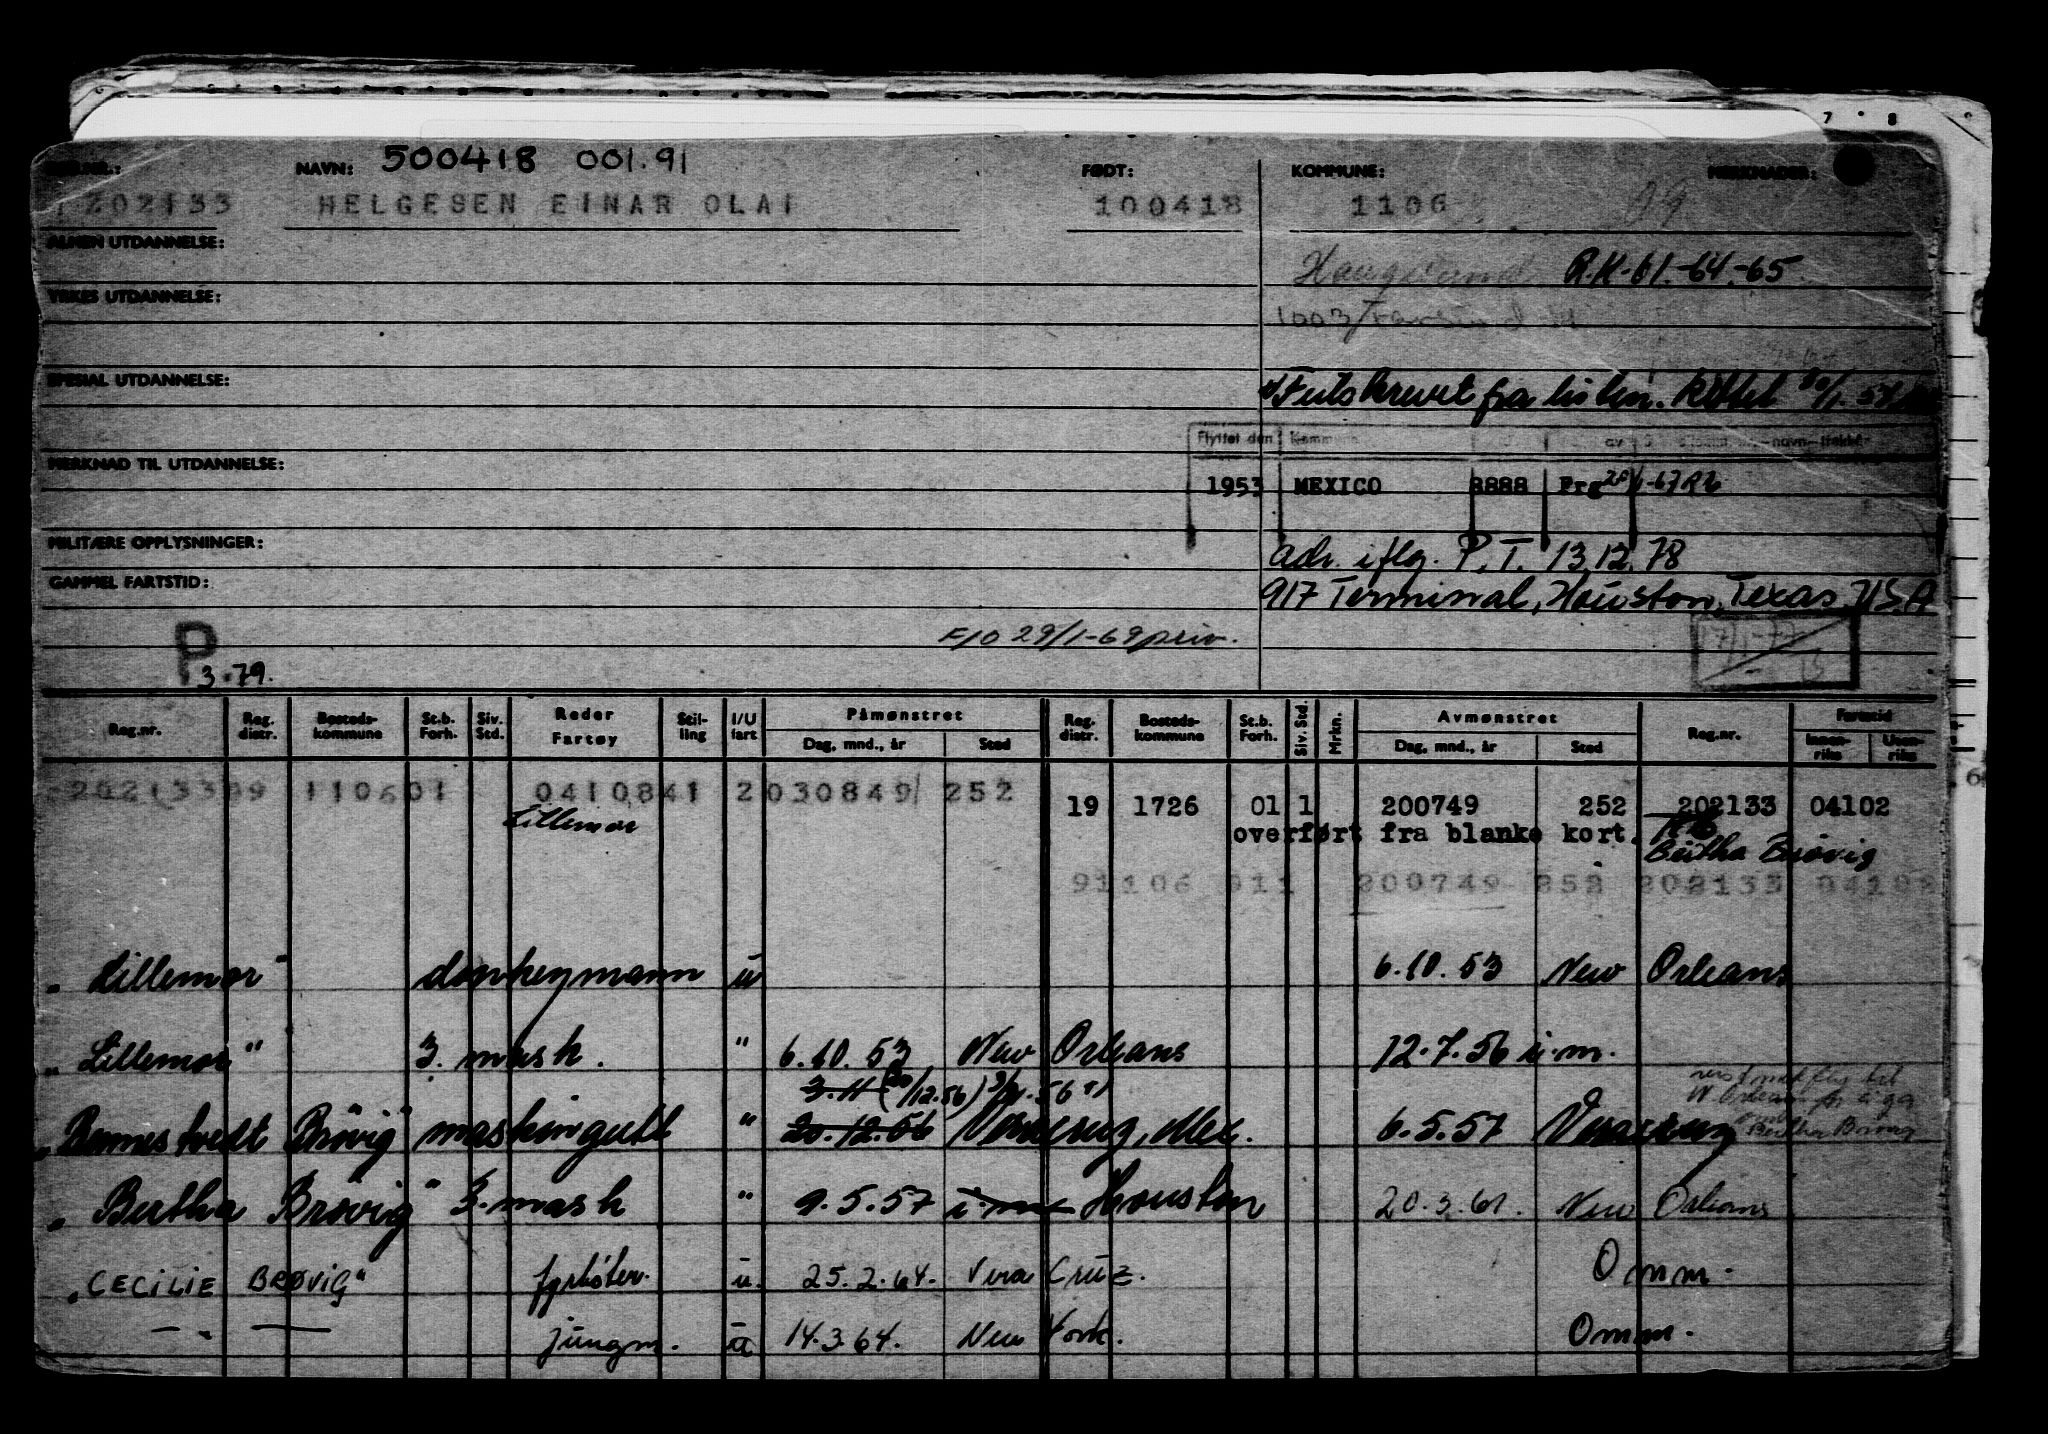 500418 001.91
NAVN: FØDT: KOMMUNE: MERKNADER:
202133 HELGESEN EINAR OLAI 100418 1106 09
ALMEN UTDANNELSE:
R.K-61.-64.-65
YRKES UTDANNELSE:
1003/
SPESIAL UTDANNELSE:
fra listen. 30/1. 57
Flyttet den Kommune av navn
MERKNAD TIL UTDANNELSE:
1953 MEXICO 8888 Frg
MILITÆRE OPPLYSNINGER:
adr. iflg. P.T. 13.12.78
GAMMEL FARTSTID:
917 Terminal, Houston, Texas, USA
F10 29/1-69 priv.
P
3-79.
Reg.nr. Reg. distr. Bosteds-kommune St.b. Forh. Siv. Std. Reder Fartøy Stil-ling I/U fart Påmønstret Dag, mnd., år Sted Reg. distr. Bosteds-kommune St.b. Forh. Siv. Std. Mrkn. Avmønstret Dag, mnd., år Sted Reg.nr. Fartstid Innen-riks Uten-riks
110601 0410841 2 030849 252
Lillemor
19 1726 01 1 200749 252 202133 04102
overført fra blanke kort.
Bertha Brøvig
91106 911 200749 252 202133 04102
"Lillemor" donkeymann u 6.10.53 New Orleans
"Lillemor" 3. mask. " 6.10.53 New Orleans 12.7.56 i.m.
3.11 (20/12.56)
Brøvig" maskingutt " 20.12.56 Veracruz, Mex. 6.5.57 Veracruz
Bertha Brøvig
"Bertha Brøvig" 3. mask " 9.5.57 i m Houston 20.3.61. New Orleans
"CECILIE BRØVIG" fyrbøter. u. 25.2.64. Vera Cruz. Omm.
— " — jungm. u 14.3.64. New York. Omm.